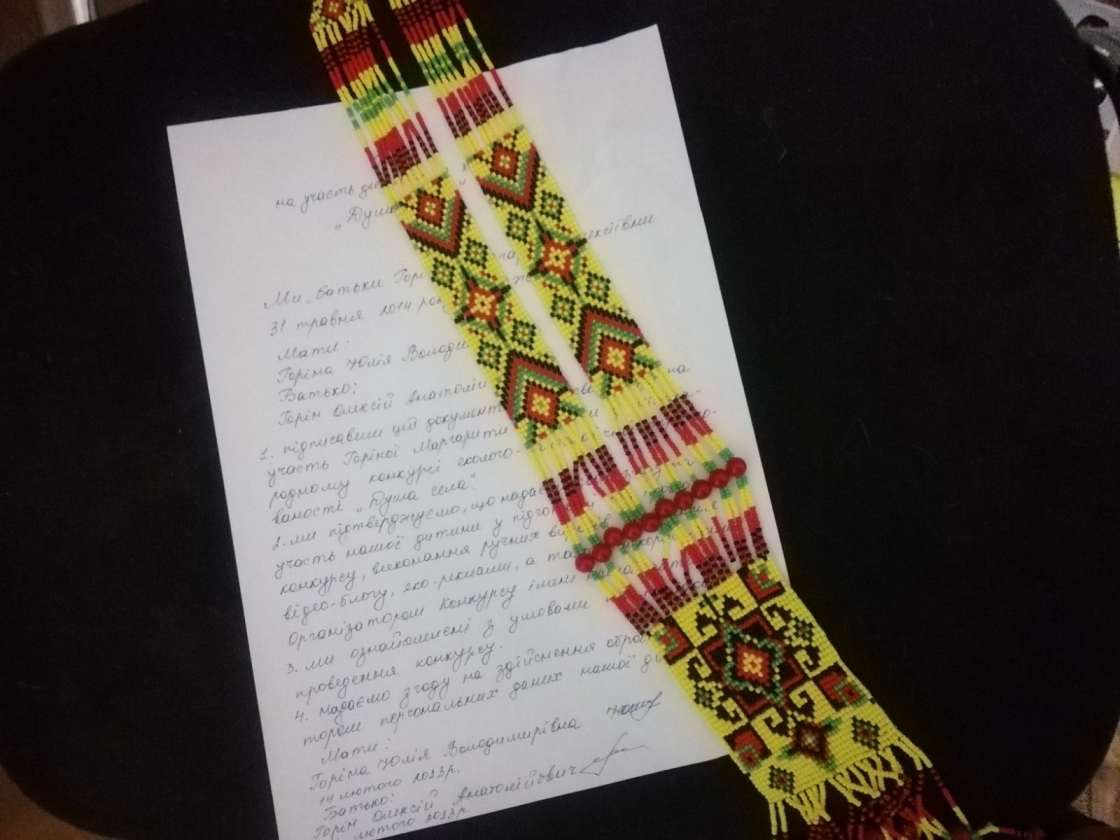 на участь
„Душа
Ми, батьки
31 травня 2014 року
Мати:
Горіна Юлія Володи
Батько:
Горін Олексій Анатолій
1. підписавши цей документ на
участь Горіної Маргарити
родному конкурсі еколого-
ваності „Душа села".
2. ми підтверджуємо, що надає
участь нашої дитини у підго
конкурсу, виконання ручних ви
відео-блогу, еко-реклами, а та
Організатором Конкурсу імені
3. ми ознайомлені з умовами
проведення конкурсу.
4. надаємо згоду на здійснення обро
тором персональних даних нашої ди
Мати:
Горіна Юлія Володимирівна
14 лютого 2023р.
Батько:
Горін Олексій Анатолійович
лютого 2023р.